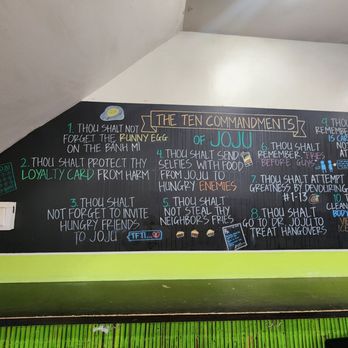 THE TEN COMMANDMENTS
OF JOJU
1. THOU SHALT NOT
FORGET THE RUNNY EGG
ON THE BANH MI
2. THOU SHALT PROTECT THY
LOYALTY CARD FROM HARM
3. THOU SHALT
NOT FORGET TO INVITE
HUNGRY FRIENDS
TO JOJU
4. THOU SHALT SEND
SELFIES WITH FOOD
FROM JOJU TO
HUNGRY ENEMIES
5. THOU SHALT
NOT STEAL THY
NEIGHBORS FRIES
6. THOU SHALT
REMEMBER, FRIES
BEFORE GUYS
7. THOU SHALT ATTEMPT
GREATNESS BY DEVOURING
#1-13
8. THOU SHALT
GO TO DR JOJU TO
TREAT HANGOVERS
9. THOU
REMEMBER
IS CAR
10.
CLEAN
BODY